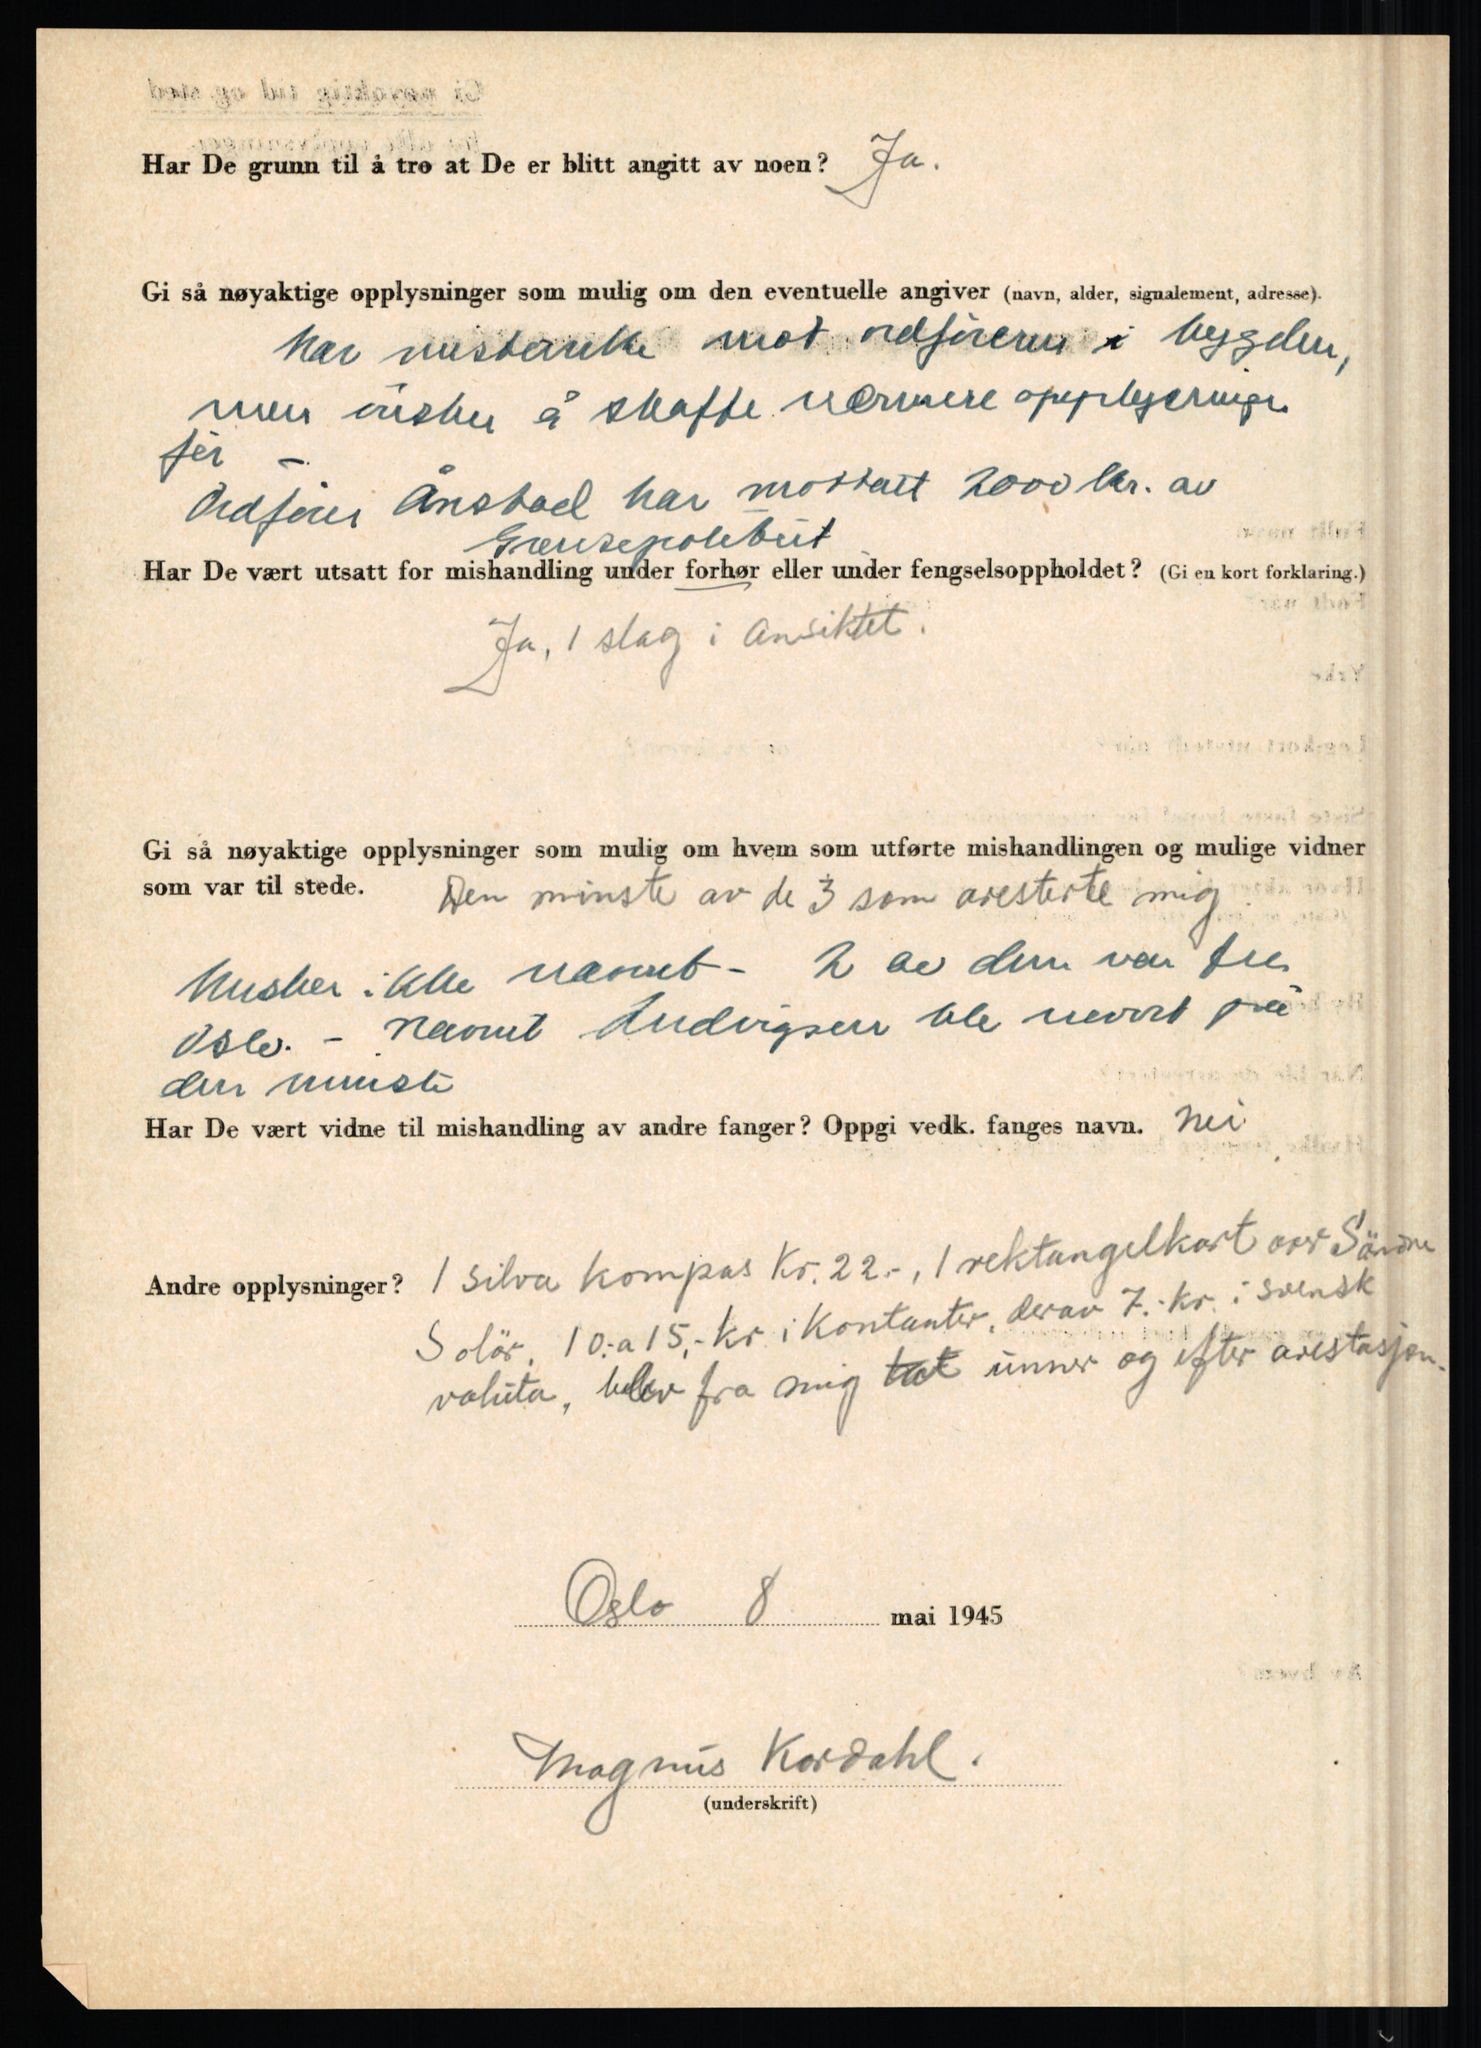 Har De grunn til å tro at De er blitt angitt av noen? Ja.
Gi så nøyaktige opplysninger som mulig om den eventuelle angiver (navn, alder, signalement, adresse).
har mistanke mot ordföreren i bygden,
men önsker å skaffe nærmere opplysninger
för –
Ordförer Ånstad har mottatt 2000 kr. av
Grensepolitiet
Har De vært utsatt for mishandling under forhør eller under fengselsoppholdet? (Gi en kort forklaring.)
Ja, 1 slag i Ansiktet.
Gi så nøyaktige opplysninger som mulig om hvem som utførte mishandlingen og mulige vidner
som var til stede. Den minste av de 3 som aresterte mig.
Husker ikke navnet – 2 av dem var fra
Oslo. – Navnet Ludvigsen ble nevnt på
den minste
Har De vært vidne til mishandling av andre fanger? Oppgi vedk. fanges navn. Nei
Andre opplysninger? 1 silva kompas Kr. 22.-, 1 rektangelkart over Söndre
Solör, 10.- a 15,- kr i Kontanter, derav 7.- kr. i svensk
valuta, blev fra mig tat unner og efter arestasjon.
Oslo 8 mai 1945
Magnus Kordahl.
(underskrift)